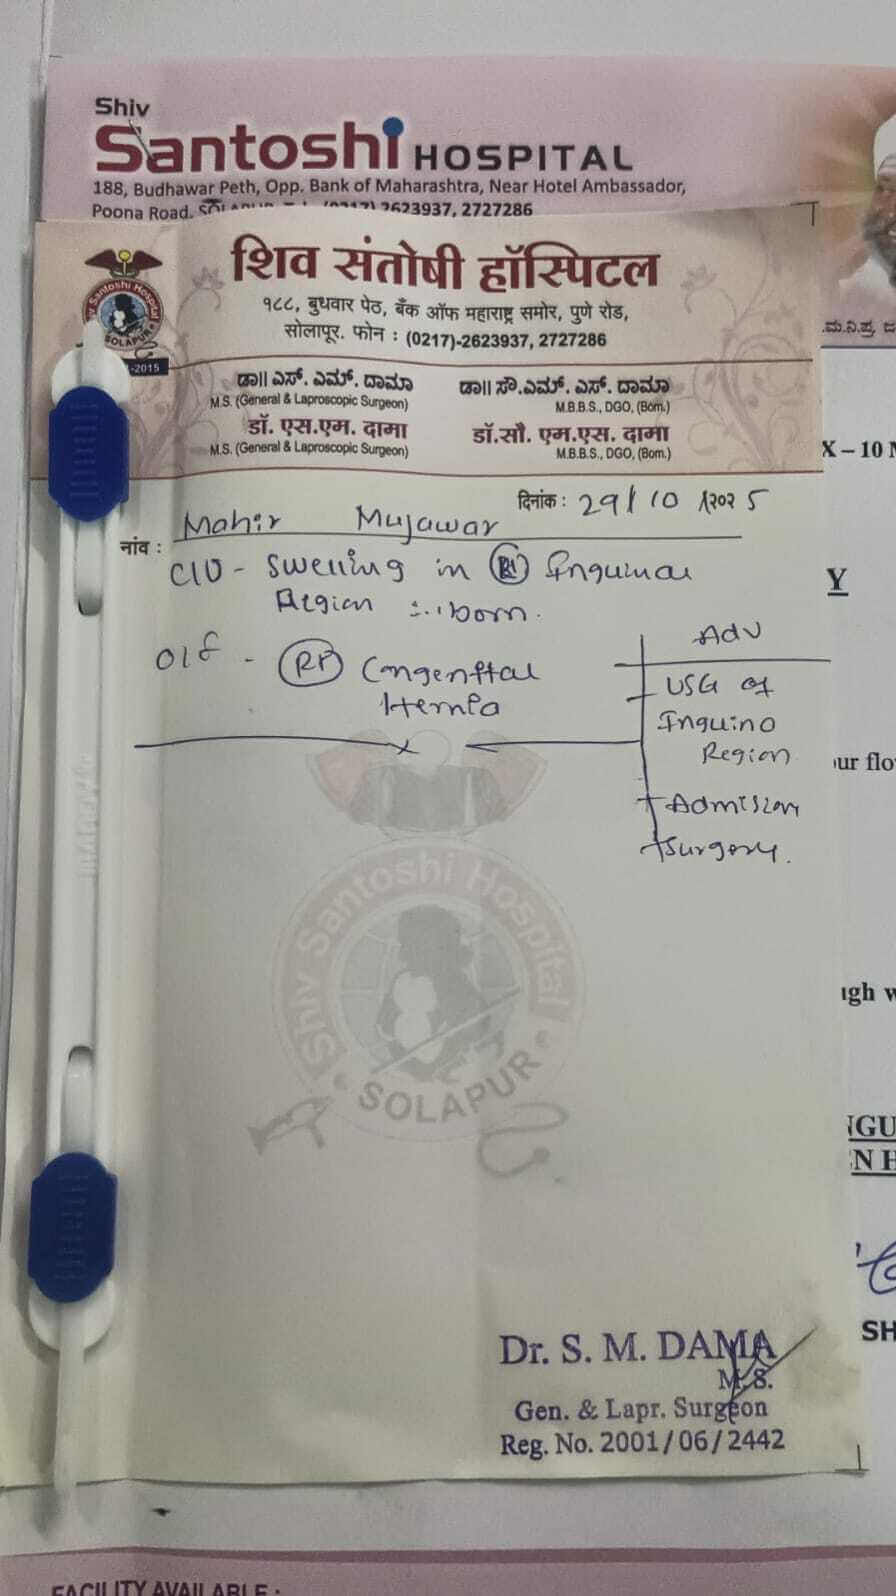 Shiv
Santoshi HOSPITAL
188, Budhawar Peth, Opp. Bank of Maharashtra, Near Hotel Ambassador,
Poona Road, SOLAPUR. 2623937, 2727286
शिव संतोषी हॉस्पिटल
१८८, बुधवार पेठ, बँक ऑफ महाराष्ट्र समोर, पुणे रोड,
सोलापूर. फोन : (0217)-2623937, 2727286
Shiv Santoshi Hospital
SOLAPUR
-2015
ಡಾ|| ಎಸ್. ಎಮ್. ದಾಮಾ
M.S. (General & Laproscopic Surgeon)
ಡಾ|| ಸೌ.ಎಮ್. ಎಸ್. ದಾಮಾ
M.B.B.S., DGO, (Bom.)
डॉ. एस.एम. दामा
M.S. (General & Laproscopic Surgeon)
डॉ.सौ. एम.एस. दामा
M.B.B.S., DGO, (Bom.)
दिनांक : 29/10/२०२5
नांव : Mahir Mujawar
C/O - Swelling in Rt Inguinal
Region born.
O/E - Rt Congenital
Hernia
Adv
USG of
Inguino
Region
+ Admission
+ Surgery.
Shiv Santoshi Hospital
SOLAPUR
Dr. S. M. DAMA
M.S.
Gen. & Lapr. Surgeon
Reg. No. 2001/06/2442
X – 10
Y
ur flo
gh w
GU
N H
SH
FACILITY AVAILABLE :